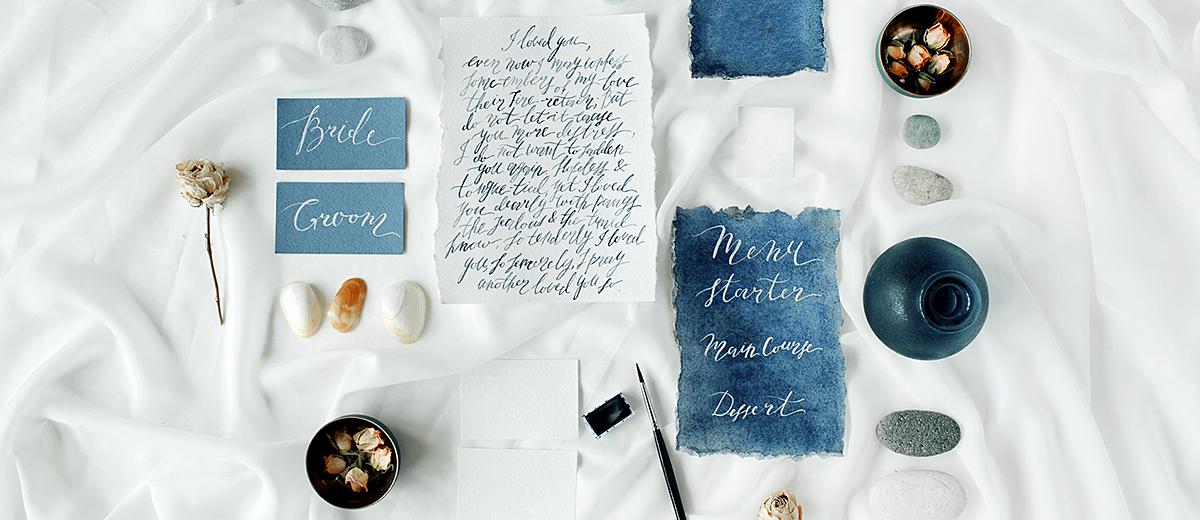 Bride
Groom
I loved you,
even now I may confess
some embers of my love
their fire retain; But
do not let it cause
you more distress,
I do not want to sadden
you again. Hopeless &
tongue-tied yet I loved
you dearly with pangs
the jealous & the timid
know. So tenderly I loved
you, so sincerely, I pray
another loved you so.
Menu
Starter
Main Course
Dessert